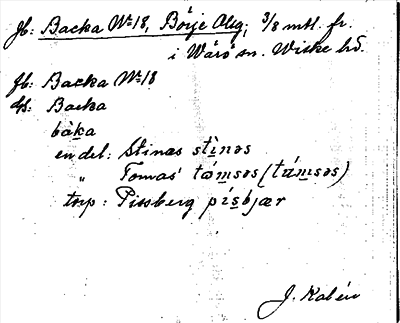 Jb: Backa No 18, Börje Abg; 3/8 mtl. fr.
i Wärö sn. Wiske hd.
Jb: Backa No 18
ds: Backa
bàka
en del: Stinas stìnəs
„ Tomas' tə́msəs (túmsəs)
torp: Pissberg písbjær
J. Kalén